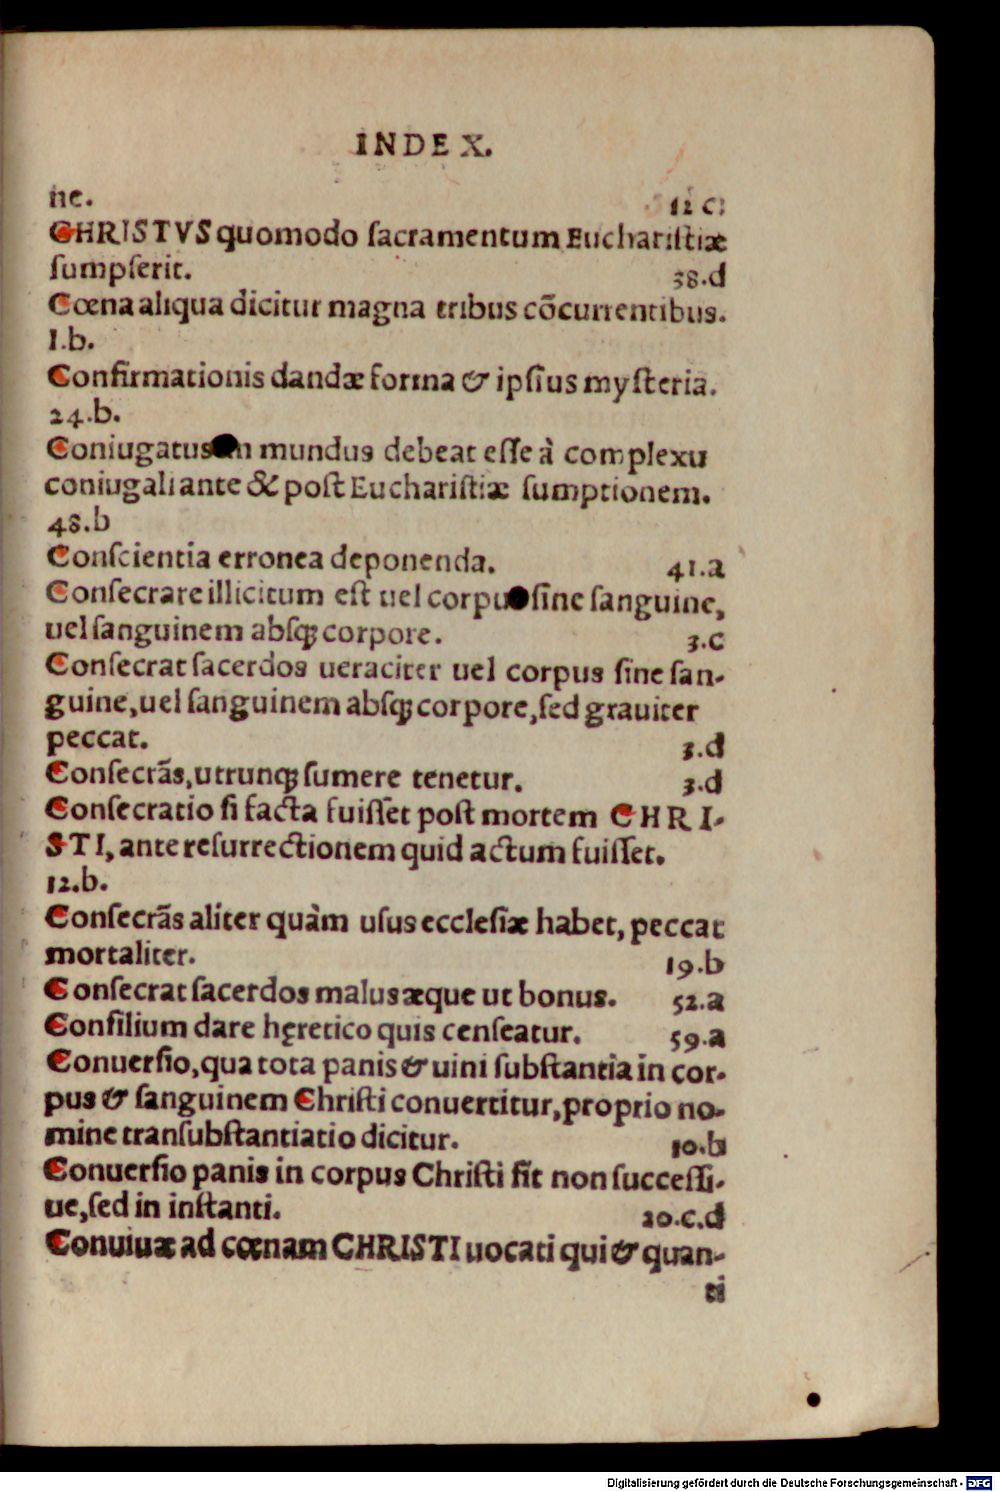 INDEX.
ne. 12 c.
CHRISTVS quomodo ſacramentum Euchariſtiæ
ſumpſerit. 38.d
Cœna aliqua dicitur magna tribus cõcurrentibus.
1.b.
Confirmationis dandæ forma & ipſius myſteria.
24.b.
Coniugatus mundus debeat eſſe à complexu
coniugali ante & poſt Euchariſtiæ ſumptionem.
48.b
Conſcientia erronea deponenda. 41.a
Conſecrare illicitum eſt uel corpus ſine ſanguine,
uel ſanguinem abſꝗ corpore. 3.c
Conſecrat ſacerdos ueraciter uel corpus ſine ſan-
guine, uel ſanguinem abſꝗ corpore, ſed grauiter
peccat. 3.d
Conſecrãs, utrunꝗ ſumere tenetur. 3.d
Conſecratio ſi facta fuiſſet poſt mortem CHRI-
STI, ante reſurrectionem quid actum fuiſſet.
12.b.
Conſecrãs aliter quàm uſus eccleſiæ habet, peccat
mortaliter. 19.b
Conſecrat ſacerdos malus æque ut bonus. 52.a
Conſilium dare hęretico quis cenſeatur. 59.a
Conuerſio, qua tota panis & uini ſubſtantia in cor-
pus & ſanguinem Chriſti conuertitur, proprio no-
mine tranſubſtantiatio dicitur. 10.b
Conuerſio panis in corpus Chriſti fit non ſucceſſi-
ue, ſed in inſtanti. 20.c.d
Conuiuæ ad cœnam CHRISTI uocati qui & quan-
ti
Digitalisierung gefördert durch die Deutsche Forschungsgemeinschaft - DFG